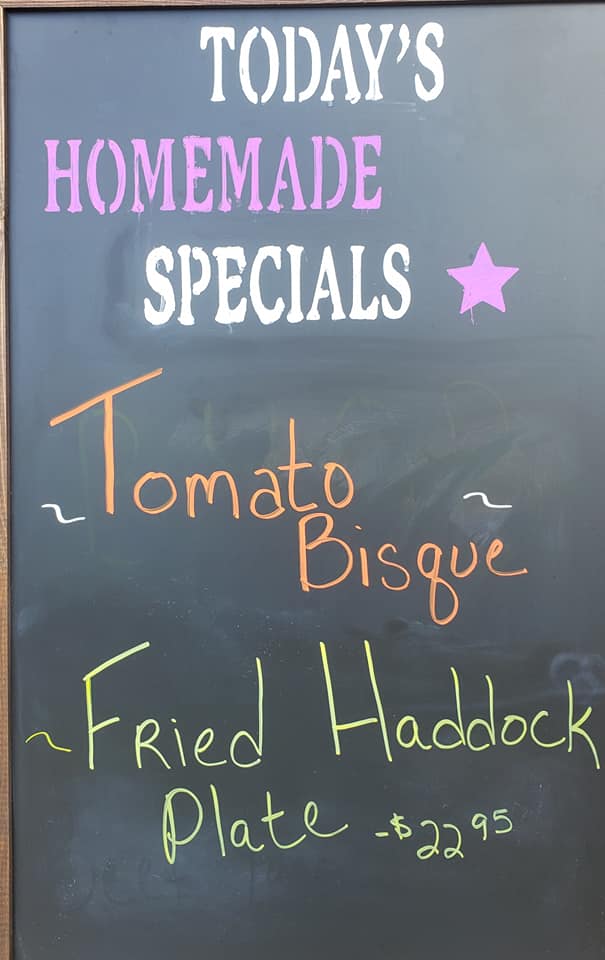 TODAY'S
HOMEMADE
SPECIALS
~ Tomato ~
Bisque
~ Fried Haddock
Plate - $22.95